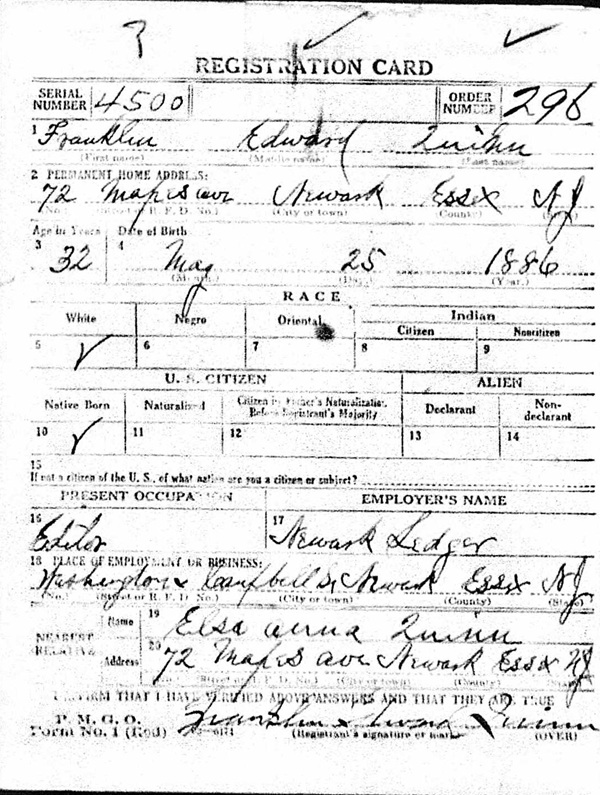 REGISTRATION CARD
SERIAL NUMBER 4500 ORDER NUMBER 296
1 Franklin Edward Quinn
(First name) (Middle name) (Last name)
2 PERMANENT HOME ADDRESS:
72 Mapes ave Newark Essex NJ
(No.) (Street or R. F. D. No.) (City or town) (County) (State)
Age in Years Date of Birth
3 32 4 May 25 1886
(Month.) (Day.) (Year.)
RACE
White Negro Oriental Indian
Citizen Noncitizen
5 ✓ 6 7 8 9
U. S. CITIZEN ALIEN
Native Born Naturalized Citizen by Father's Naturalization Before Registrant's Majority Declarant Non-declarant
10 ✓ 11 12 13 14
15
If not a citizen of the U. S., of what nation are you a citizen or subject?
PRESENT OCCUPATION EMPLOYER'S NAME
16 Editor 17 Newark Ledger
18 PLACE OF EMPLOYMENT OR BUSINESS:
Washington & Campbell St Newark Essex NJ
(No.) (Street or R. F. D. No.) (City or town) (County) (State)
NEAREST RELATIVE Name 19 Elsa anna Quinn
Address 20 72 Mapes ave Newark Essex NJ
(No.) (Street or R. F. D. No.) (City or town) (County) (State)
I AFFIRM THAT I HAVE VERIFIED ABOVE ANSWERS AND THAT THEY ARE TRUE
P. M. G. O.
Form No. 1 (Red) Franklin Edward Quinn
(Registrant's signature or mark) (OVER)